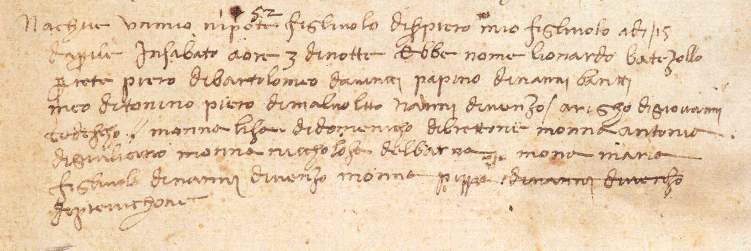 52
Nachue unmio nipote figliuolo diser piero mio figliuolo adi 15
daprile insabato aore 3 dinotte ebbe nome lionardo batezollo
prete piero dibartolomeo davinci papino dinanni bantti
meo ditonino piero dimalvoltto nanni divenzo arigho digiovanni
tedescho monna lisa didomenicho dibrettone monna antonia
digiuliano monna nicholosa delbarna mona maria
figliuola dinanni divenzo monna pippa dinanni divenzo
diprevichone